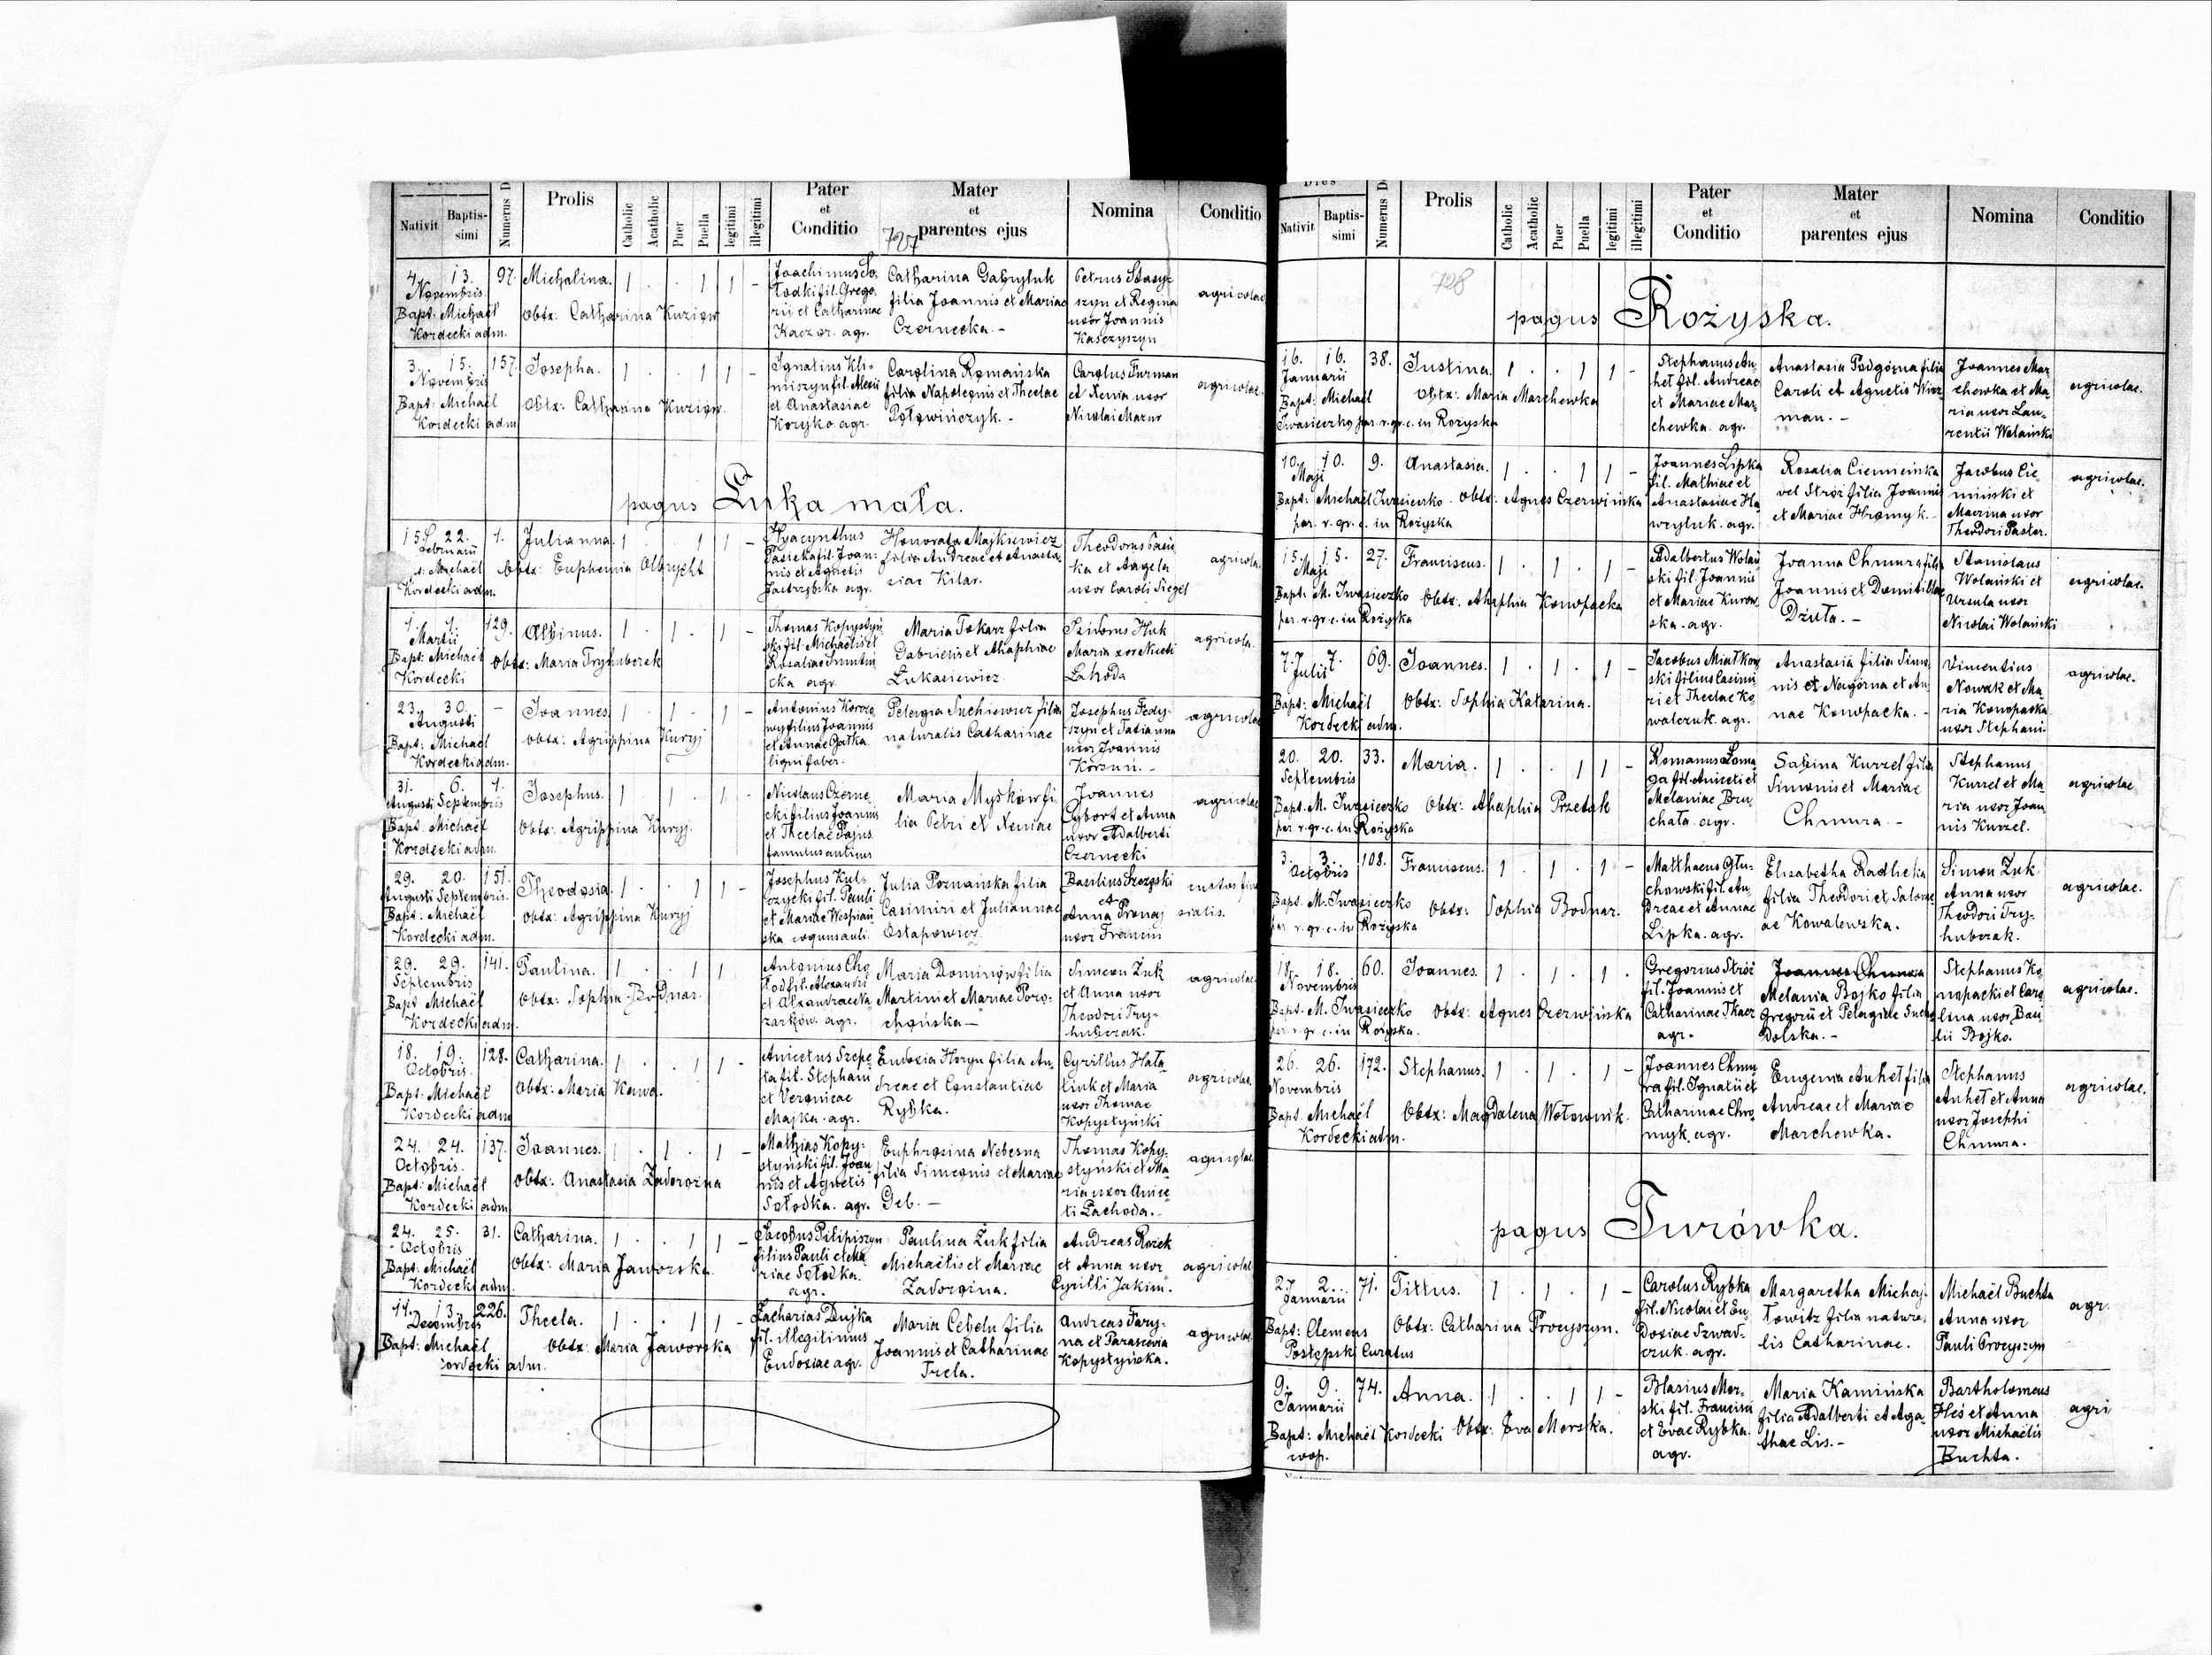 Dies
Nativit Baptis-simi Numerus D Prolis Catholic Acatholic Puer Puella legitimi illegitimi Pater et Conditio Mater et parentes ejus Nomina Conditio
727
4. 13. 97. Michalina. 1 . . 1 1 -
Novembris
Bapt: Michaël Kordecki adm.
Obtx: Catharina Kuziow
Joachimus So-
łodki fil. Grego-
rii et Catharinae
Kaczor. agr.
Catharina Gabryluk
filia Joannis et Mariae
Czernecka. -
Petrus Stasy-
szyn et Regina
uxor Joannis
Kaszyszyn
agricolae
3. 15. 157. Josepha. 1 . . 1 1 -
Novembris
Bapt: Michaël Kordecki adm.
Obtx: Catharina Kuziow
Ignatius Kli-
miszyn fil. Alexii
et Anastasiae
Koryko. agr.
Carolina Romańska
filia Napoleonis et Theclae
Połowińczyk. -
Carolus Furman
et Xenia uxor
Nicolai Mazur
agricolae.
pagus Łuka mała.
15. 22. 1. Julianna. 1 . . 1 1 -
Februarii
Michaël
Kordecki adm.
Obtx: Euphemia Olbrycht
Hyacynthus
Pasieka fil. Joan-
nis et Agnetis
Jastrzębska agr.
Honorata Majkiewicz
filia Andreae et Anasta-
siae Kilar.
Theodorus Pasie-
ka et Angela
uxor Caroli Siegel
agricolae
1. 1. 129. Albinus. 1 . 1 . 1 -
Martii
Bapt: Michaël
Kordecki
Obtx: Maria Tryhuberak
Thomas Kopystyń-
ski fil. Michaelis et
Rosaliae
cka agr.
Maria Tokarz filia
Gabrielis et Ahaphiae
Łukasiewicz
Isidorus Huk
Maria uxor
Lahoda
agricolae.
23. 30. - Joannes. 1 . 1 . 1 -
Augusti
Bapt: Michaël
Kordecki adm.
Obtx: Agrippina Kuryj
Antonius
filius Joannis
et Annae Gałka
ligni faber.
Pelagia Suchiewicz filia
naturalis Catharinae
Josephus Fedy-
szyn et Tatianna
uxor Joannis
Korsun. -
agricolae
31. 6. 1. Josephus. 1 . 1 . 1 -
Augusti Septembris
Bapt: Michaël
Kordecki adm.
Obtx: Agrippina Kuryj.
Nicolaus Czerne-
cki filius Joannis
et Theclae Pajus
famulus
Maria Myśków fi-
lia Petri et Xeniae
Joannes
Cybort et Anna
uxor Adalberti
Czernecki
agricolae
29. 20. 151. Theodosia. 1 . . 1 1 -
Augusti Septembris.
Bapt. Michaël
Kordecki adm.
Obtx: Agrippina Kuryj
Josephus Kul-
czycki fil. Pauli
et Mariae
ska
Julia Poznańska filia
Casimiri et Juliannae
Ostapowicz.
Basilius
et
Anna
uxor Francisci
29. 29. 141. Paulina. 1 . . 1 1
Septembris
Bapt Michaël
Kordecki adm.
Obtx: Sophia Bodnar.
Antonius Cho-
łod fil. Alexandri
et Alexandrae Na-
zarków. agr.
Maria Dominów filia
Martini et Mariae Poro-
chońska -
Simeon Żuk
et Anna uxor
Theodori Try-
huberak.
agricolae
18. 19. 128. Catharina. 1 . . 1 1 -
Octobris
Bapt: Michaël
Kordecki adm
Obtx: Maria Kawa.
Anicetus Szepe-
ta fil. Stephani
et Veronicae
Majka. agr.
Eudoxia Horyn filia An-
dreae et Constantiae
Rybka.
Cyrillus Hała-
tink et Maria
uxor Thomae
Kopystyński
agricolae
24. 24. 137. Joannes. 1 . 1 . 1 -
Octobris.
Bapt: Michaël
Kordecki adm
Obtx: Anastasia Zadorożna
Mathias Kopy-
styński fil. Joan-
nis et Agnetis
Sołodka. agr.
Euphrosina Nebesna
filia Simeonis et Mariae
Geb. -
Thomas Kopy-
styński et Ma-
ria uxor Anice-
ti Pachoda. -
agricolae
24. 25. 31. Catharina. 1 . . 1 1 -
Octobris
Bapt: Michaël
Kordecki adm.
Obtx: Maria Jaworska.
Jacobus Pilipiszyn
filius Pauli et Ma-
riae Sołodka.
agr.
Paulina Żuk filia
Michaëlis et Mariae
Zadorożna.
Andreas Rożek
et Anna uxor
Cyrilli Jakim.
agricolae
11. 13. 226. Thecla. 1 . . 1 1 -
Decembris
Bapt: Michaël
Kordecki adm.
Obtx: Maria Jaworska
Zacharias Dujka
fil. illegitimus
Eudoxiae agr.
Maria Cebelu filia
Joannis et Catharinae
Trela.
Andreas Fary-
na et Parascevia
Kopystyńska.
agricolae
Dies
Nativit Baptis-simi Numerus D Prolis Catholic Acatholic Puer Puella legitimi illegitimi Pater et Conditio Mater et parentes ejus Nomina Conditio
728
pagus Rożyska.
16. 16. 38. Justina. 1 . . 1 1 -
Januarii
Bapt: Michaël
Iwasieczko par. r. gr. c. in Rożyska
Obtx: Maria Marchewka
Stephanus An-
het fil. Andreae
et Mariae Mar-
chewka. agr.
Anastasia Podgórna filia
Caroli et Agnetis Wisz-
man. -
Joannes Mar-
chewka et Ma-
ria uxor Lau-
rentii Wolański
agricolae.
10. 10. 9. Anastasia. 1 . . 1 1 -
Maji
Bapt: Michaël Iwasieczko. Obtx: Agnes Czerwińska
par. r. gr. c. in Rożyska
Joannes Lipka
fil. Mathiae et
Anastasiae Ha-
wryluk. agr.
Rosalia Ciemińska
vel Stróż filia Joannis
et Mariae Hromyk. -
Jacobus Cie-
miński et
Macrina uxor
Theodori Pastor.
agricolae.
15. 15. 27. Franciscus. 1 . 1 . 1 -
Maji
Bapt: M. Iwasieczko Obtx: Ahaphia Konopacka
par. r. gr. c. in Rożyska
Adalbertus Wolań-
ski fil. Joannis
et Mariae Kurow-
ska. agr.
Joanna Chmura filia
Joannis et Domitillae
Dżuła. -
Stanislaus
Wolański et
Ursula uxor
Nicolai Wolański
agricolae.
7. 7. 69. Joannes. 1 . 1 . 1 -
Julii
Bapt: Michaël
Kordecki adm.
Obtx: Sophia Katarina.
Jacobus Miałkow-
ski filius Casimi-
ri et Theclae Ko-
walczuk. agr.
Anastasia filia Simo-
nis et Nagórna et An-
nae Konopacka. -
Vincentius
Nowak et Ma-
ria Konopacka
uxor Stephani.
agricolae.
20. 20. 33. Maria. 1 . . 1 1 -
Septembris
Bapt. M. Iwasieczko Obtx: Ahaphia Przetak
par. r. gr. c. in Rożyska
Romanus Łoma-
ga fil. Aniceti et
Melaniae Bru-
chata. agr.
Sabina Kurzel filia
Simonis et Mariae
Chmura. -
Stephanus
Kurzel et Ma-
ria uxor Joan-
nis Kurzel.
agricolae
3. 3. 108. Franciscus. 1 . 1 . 1 -
Octobris
Bapt. M. Iwasieczko Obtx: Sophia Bodnar.
par. r. gr. c. in Rożyska
Matthaeus Głu-
chowski fil. An-
dreae et Annae
Lipka. agr.
Elisabetha Radlicka
filia Theodori et Salome-
ae Kowalewska.
Simon Żuk
Anna uxor
Theodori Try-
huberak.
agricolae.
18. 18. 60. Joannes. 1 . 1 . 1 .
Novembris
Bapt. M. Iwasieczko Obtx: Agnes Czerwińska
par. r. gr. c. in Rożyska.
Gregorius Stróż
fil. Joannis et
Catharinae Tkacz
agr.
Joannes Chmura
Melania Bojko filia
Gregorii et Pelagiae Sucho-
dolska. -
Stephanus Ko-
nopacki et Caro-
lina uxor Basi-
lii Bojko.
agricolae.
26. 26. 172. Stephanus. 1 . 1 . 1 -
Novembris
Bapt: Michaël
Kordecki adm.
Obtx: Magdalena Wołownik.
Joannes Chmu-
ra fil. Ignatii et
Catharinae Chro-
myk. agr.
Eugenia Anhet filia
Andreae et Mariae
Marchewka.
Stephanus
Anhet et Anna
uxor Josephi
Chmura.
agricolae.
pagus Turówka.
2. 2. 71. Tittus. 1 . 1 . 1 -
Januarii
Bapt: Clemens
Postępski Curatus
Obtx: Catharina Procyszyn.
Carolus Rybka
fil. Nicolai et Eu-
doxiae Szwad-
czuk. agr.
Margaretha Michaj-
łowitz filia natura-
lis Catharinae.
Michaël Buchta
Anna uxor
Pauli Procyszyn
agr.
9. 9. 74. Anna. 1 . . 1 1 -
Januarii
Bapt: Michaël Kordecki Obtx: Eva Morska.
coop.
Blasius Mor-
ski fil. Francisci
et Evae Rybka.
agr.
Maria Kamińska
filia Adalberti et Aga-
thae Lis. -
Bartholomeus
Heś et Anna
uxor Michaëlis
Buchta.
agri